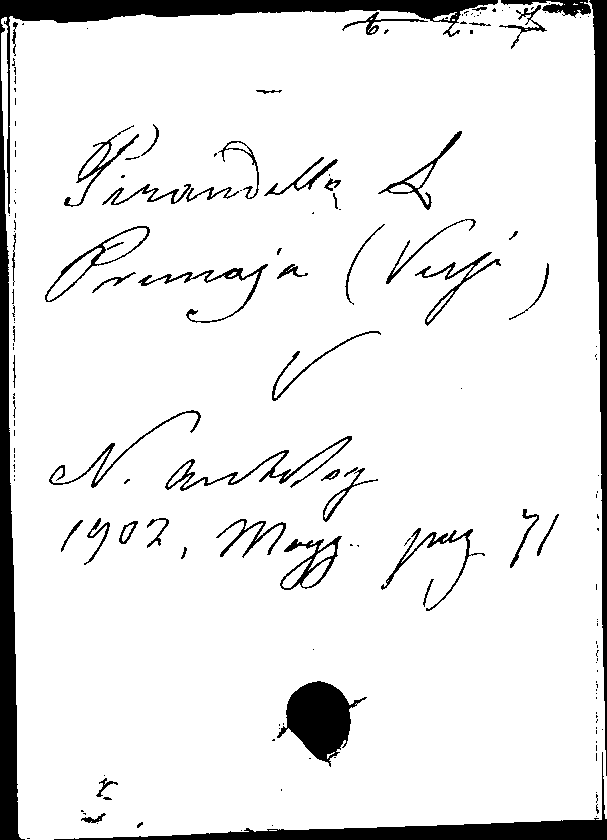 6. 2. 7
Pirandello L
Primaja (Versi)
V
N. Antolog
1902, Magg. pag 71